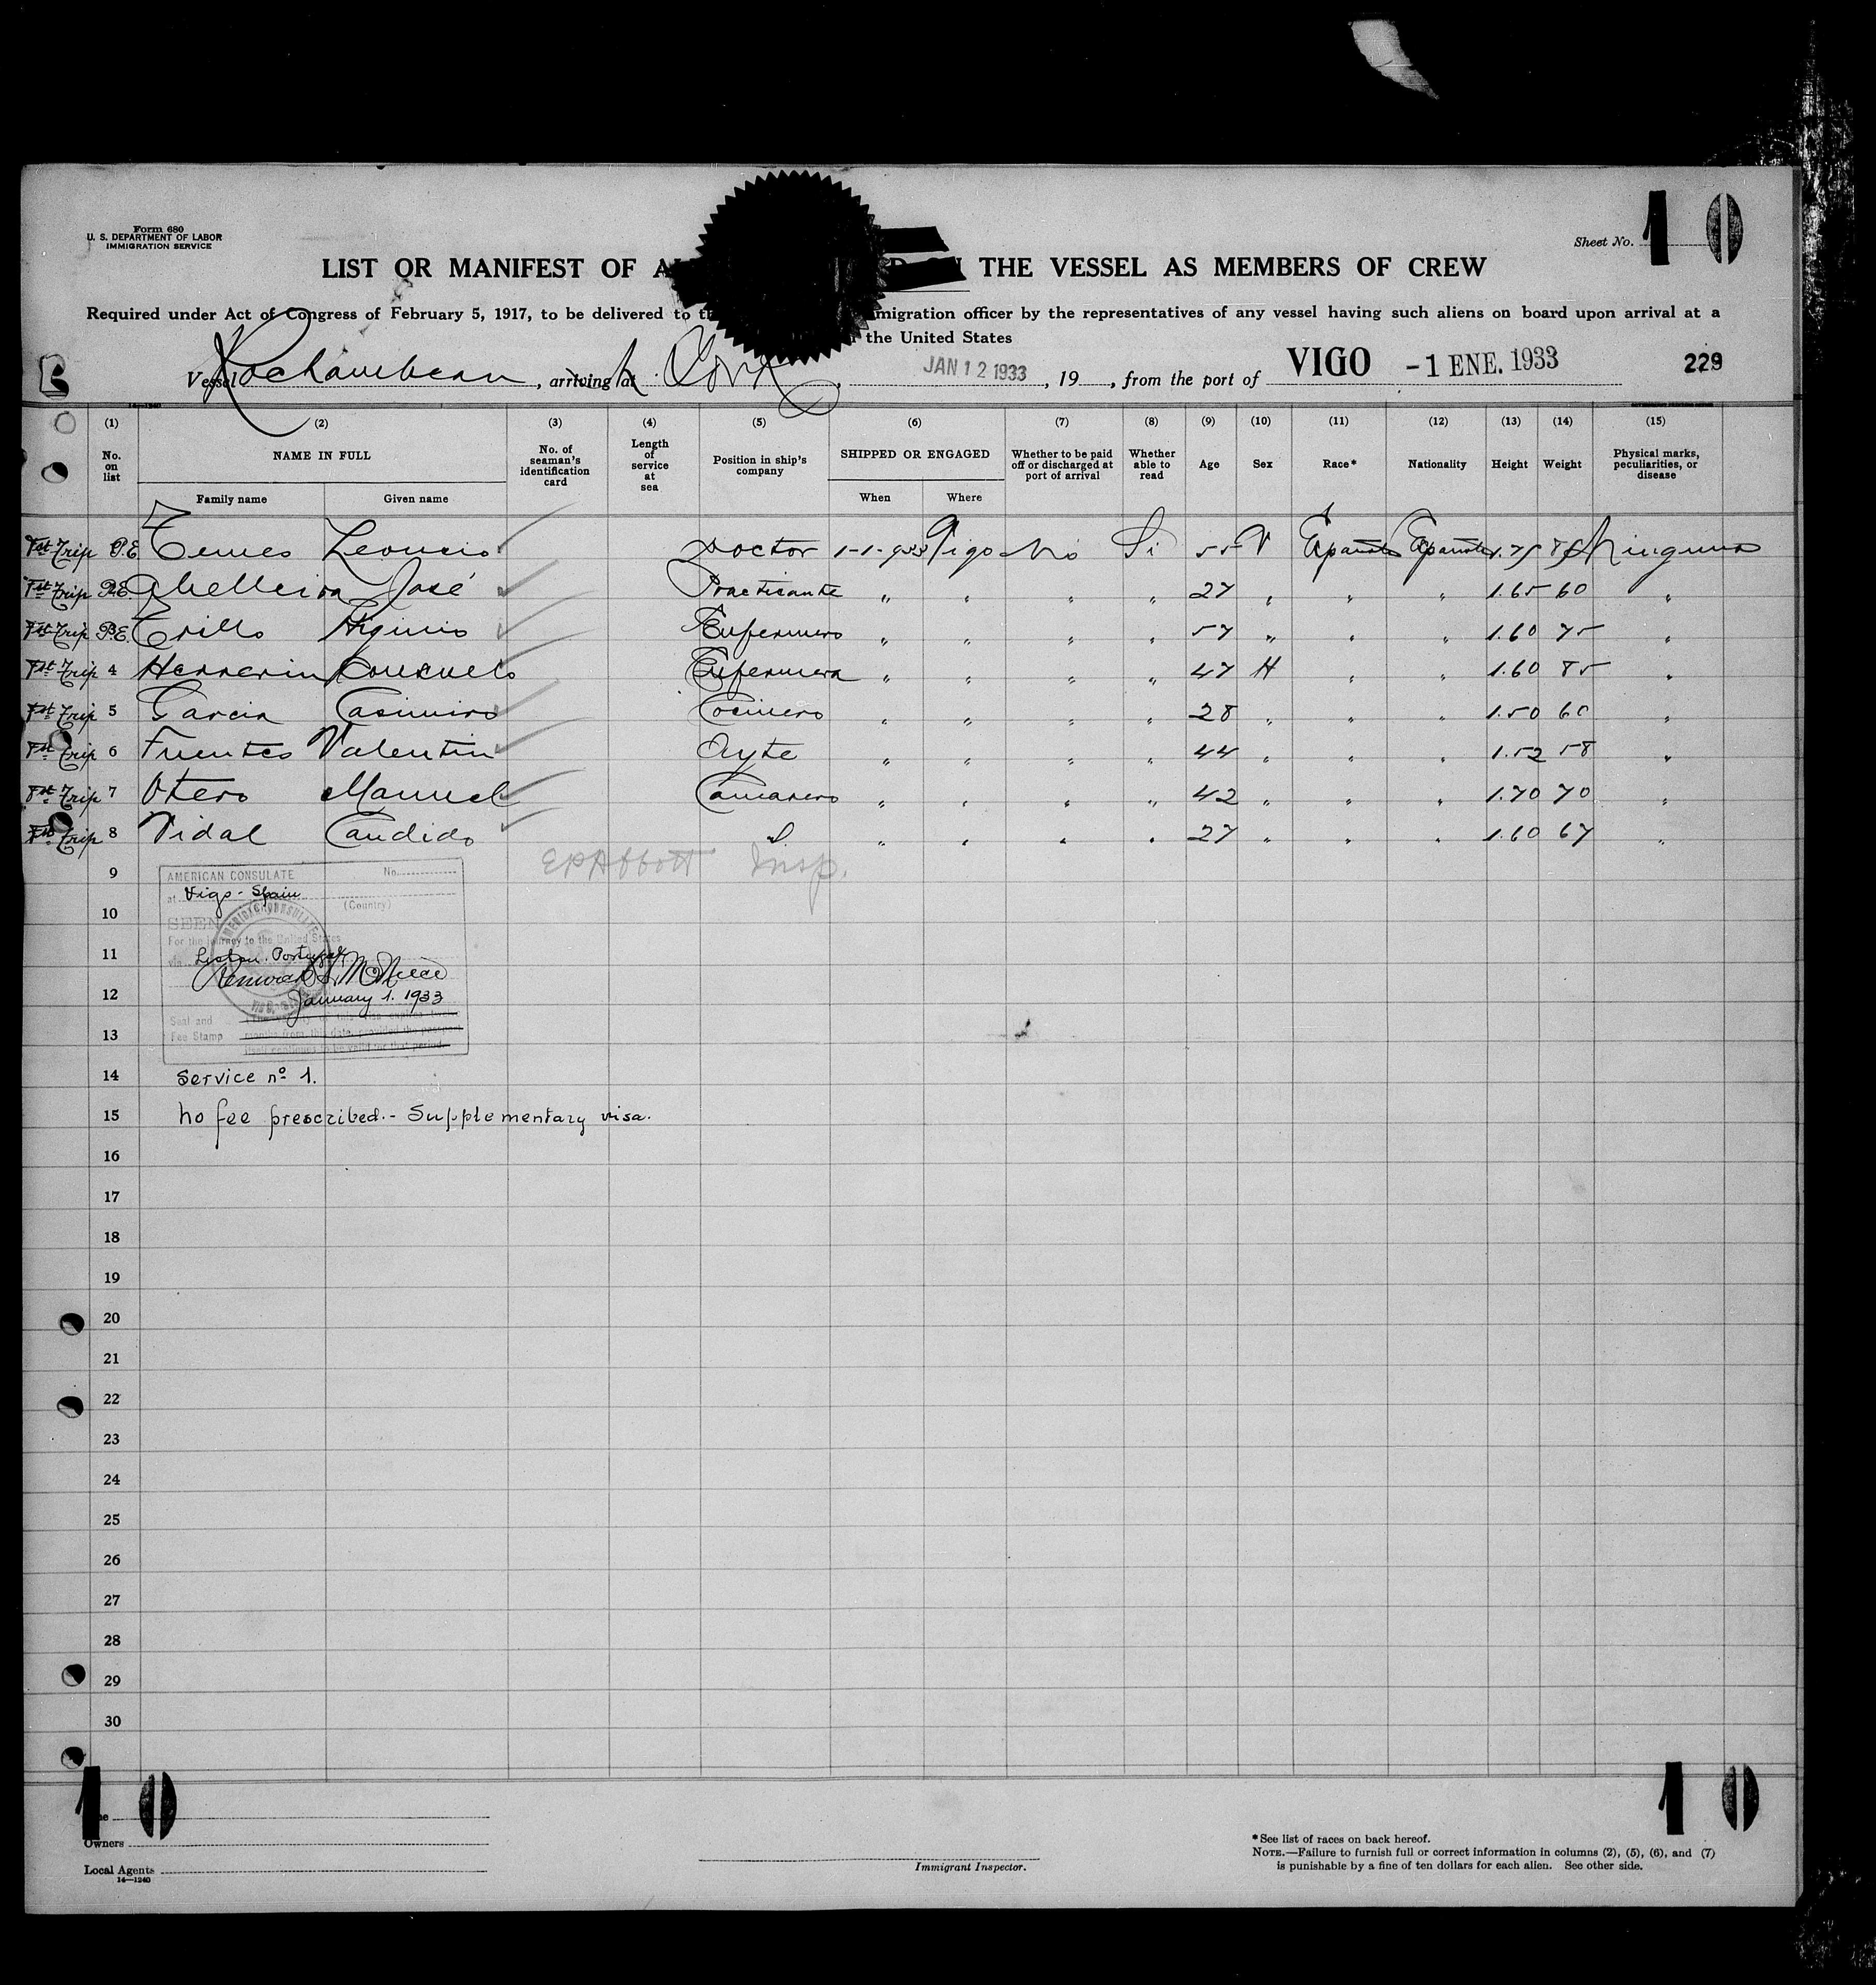 Form 680
U. S. DEPARTMENT OF LABOR
IMMIGRATION SERVICE
Sheet No. 10
LIST OR MANIFEST OF THE VESSEL AS MEMBERS OF CREW
Required under Act of Congress of February 5, 1917, to be delivered to migration officer by the representatives of any vessel having such aliens on board upon arrival at a
the United States
Vessel Rochambeau, arriving at N. York, JAN 12 1933, 19, from the port of VIGO -1 ENE. 1933 229
(1) (2) (3) (4) (5) (6) (7) (8) (9) (10) (11) (12) (13) (14) (15)
No. on list NAME IN FULL No. of seaman's identification card Length of service at sea Position in ship's company SHIPPED OR ENGAGED Whether to be paid off or discharged at port of arrival Whether able to read Age Sex Race* Nationality Height Weight Physical marks, peculiarities, or disease
Family name Given name When Where
1st Trip P.E. Temes Leoncio Doctor 1-1-933 Vigo No Si 55 V Española Española 1.75 85 Ninguna
1st Trip P.E. Abelleira José Practicante " " " " 27 " " " 1.65 60 "
1st Trip P.E. Trillo Higinio Enfermero " " " " 57 " " " 1.60 75 "
1st Trip 4 Herrerin Consuelo Enfermera " " " " 47 H " " 1.60 85 "
1st Trip 5 Garcia Casimiro Cocinero " " " " 28 " " " 1.50 60 "
1st Trip 6 Fuentes Valentin Ayte " " " " 44 " " " 1.52 58 "
1st Trip 7 Otero Manuel Camarero " " " " 42 " " " 1.70 70 "
Trip 8 Vidal Candido " " " " 27 " " " 1.60 67 "
EPAbbott Insp.
9
AMERICAN CONSULATE No.
at Vigo - Spain
(Country)
10
SEEN
For the journey to the United States
11
via Lisbon. Portugal
12
January 1. 1933
Seal and
Fee Stamp months from this date, provided the passport
itself continues to be valid for that period.
13
14 Service nº 1.
15 No fee prescribed.- Supplementary visa.
16
17
18
19
20
21
22
23
24
25
26
27
28
29
30
10 10
Owners
Local Agents
14—1240
Immigrant Inspector.
*See list of races on back hereof.
NOTE.—Failure to furnish full or correct information in columns (2), (5), (6), and (7)
is punishable by a fine of ten dollars for each alien. See other side.